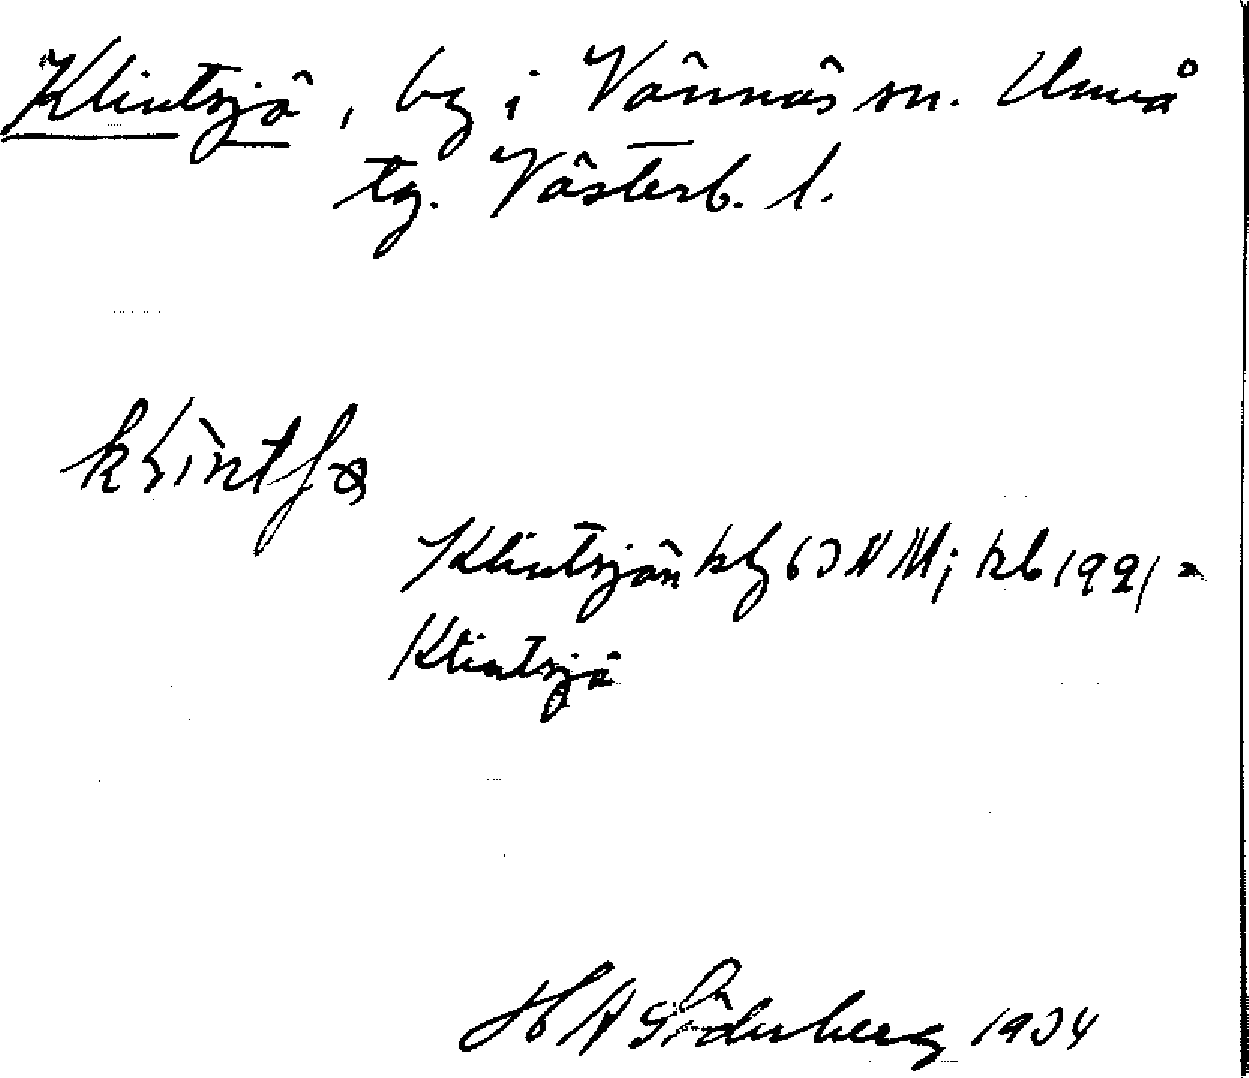 Klintsjö, by i Vännäs sn. Umeå
tg. Västerb. l.
Klintsjön kbl 63 NM; kb 1921 =
Klintsjö
H A Söderberg 1934